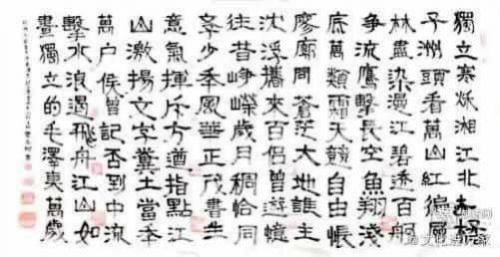 獨立寒秋湘江北去橘
子洲頭看萬山紅徧層
林盡染漫江碧透百舸
爭流鷹擊長空魚翔淺
底萬類霜天競自由悵
廖廓問蒼茫大地誰主
沈浮攜來百侶曾遊憶
往昔崢嶸歲月稠恰同
學少年風華正茂書生
意氣揮斥方遒指點江
山激揚文字糞土當年
万户侯曾記否到中流
擊水浪遏飛舟江山如
畫獨立的毛澤東萬歲